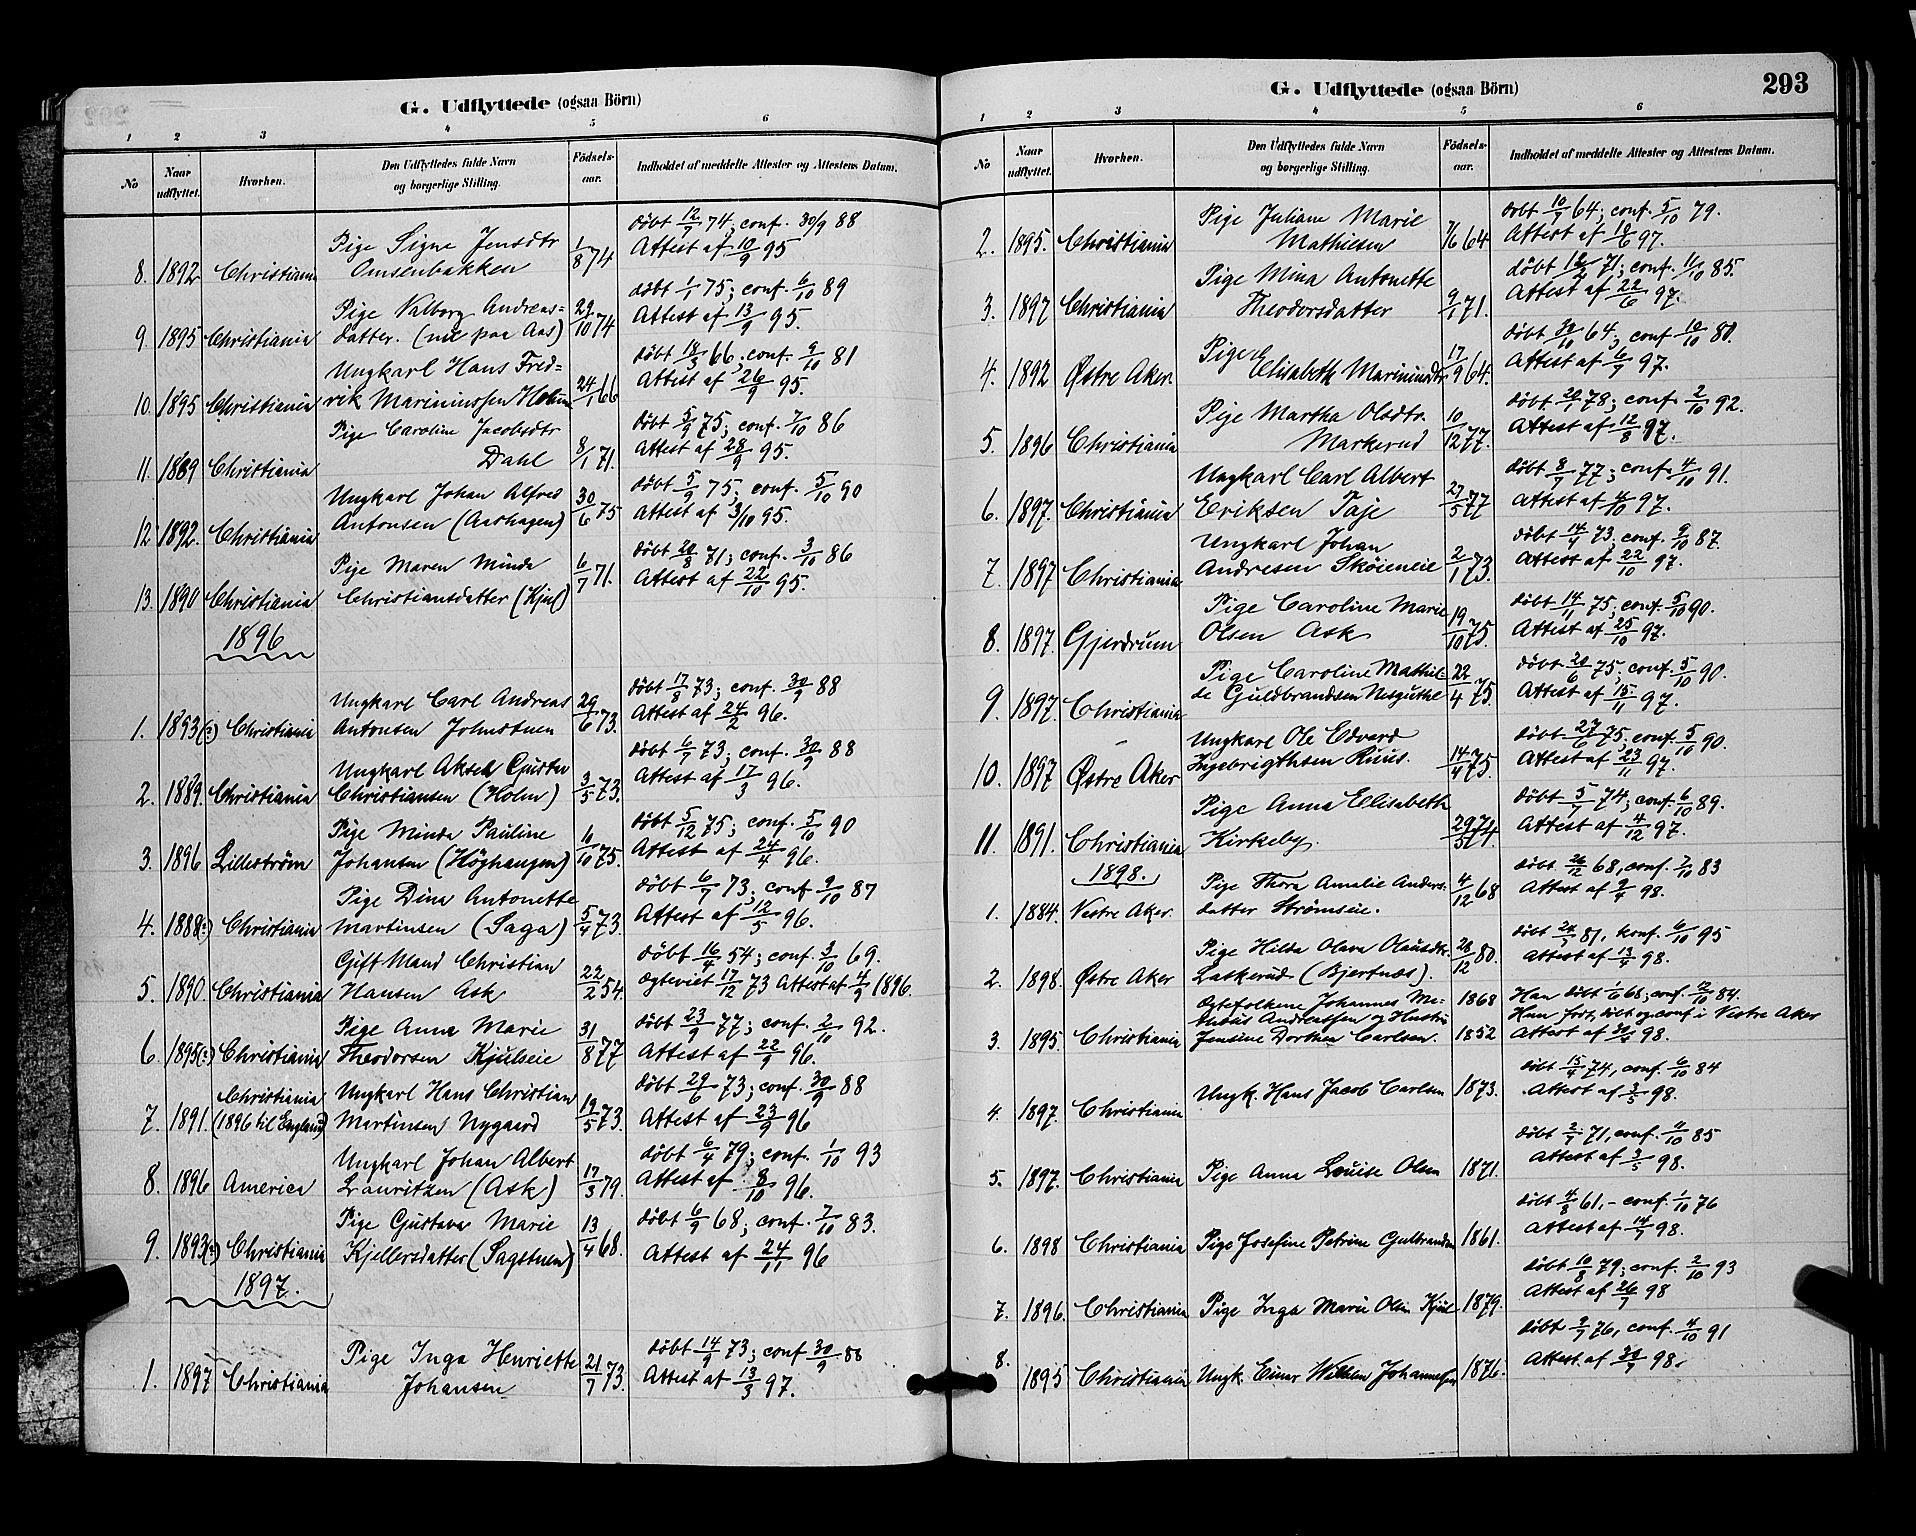 G. Udflyttede (ogsaa Börn)
1 2 3 4 5 6
No Naar udflyttet. Hvorhen. Den Udflyttedes fulde Navn og borgerlige Stilling. Födsels-aar. Indholdet af meddelte Attester og Attestens Datum.
Pige Signe Jensdtr døbt 12/7 74, conf. 30/9 88
8. 1892 Christiania Omsenbakken 1/8 74 Attest af 10/9 95
Pige Valborg Andreas= døbt 1/1 75; conf. 6/10 89
9. 1895 Christiania datter. (nu paa Aas) 29/10 74 Attest af 13/9 95.
Ungkarl Hans Fred= døbt 18/3 66, conf. 9/10 81
10. 1895 Christiania rik Marinussen Holm 24/1 66 Attest af 26/9 95.
Pige Caroline Jacobsdtr døbt 5/9 75; conf. 7/10 86
11. 1889 Christiania Dahl 8/1 71. Attest af 28/9 95.
Ungkarl Johan Alfred døbt 5/9 75; conf. 5/10 90
12 1892. Christiania Antonsen (Aashagen) 30/6 75 Attest af 3/10 95.
Pige Maren Minda døbt 20/8 71; conf. 3/10 86
13. 1890 Christiania Christiansdatter (Kjul) 6/7 71. Attest af 22/10 95.
1896
Ungkarl Carl Andreas døbt 17/8 73; conf. 30/9 88
1. 1893(?) Christiania Antonsen Johnstuen 29/6 73. Attest af 24/2 96.
Ungkarl Aksel Gustav døbt 6/7 73; conf. 30/9 88
2. 1889. Christiania Christiansen (Holm) 3/5 73. Attest af 17/3 96.
Pige Minda Pauline døbt 5/12 75; conf. 5/10 90
3. 1896 Lillestrøm Johansen (Höghaugen) 6/10 75. Attest af 24/4 96.
Pige Dina Antonette døbt 6/7 73; conf 9/10 87
4. 1888(?) Christiania Martinsen (Saga) 5/4 73. Attest af 12/5 96.
Gift Mand Christian døbt 16/4 54; conf. 3/10 69.
5. 1890. Christiania Hansen Ask 22/2 54. ogteviet 17/12 73 Attest af 4/9 1896.
Pige Anna Marie døbt 23/9 77; conf. 2/10 92.
6. 1895(?) Christiania Theodorsen Kjulseie 31/8 77 Attest af 22/9 96.
Christiania Ungkarl Hans Christian døbt 29/6 73; conf. 30/9 88
7. 1891. (1896 til England) Martinsen Nygaard 19/5 73. Attest af 23/9 96
Ungkarl Johan Albert døbt 6/4 79; conf. 1/10 93
8. 1896 America Lauritzen (Ask) 17/3 79. Attest af 8/10 96.
Pige Gustava Marie døbt 6/9 68; conf. 7/10 83.
9. 1893(?) Christiania Kjellersdatter (Sagstuen) 13/4 68. Attest af 24/11 96
1897.
Pige Inga Henriette døbt 14/9 73; conf 30/9 88
1. 1897 Christiania Johansen 21/7 73. Attest af 13/3 97.
293
G. Udflyttede (ogsaa Börn)
1 2 3 4 5 6
No Naar udflyttet. Hvorhen. Den Udflyttedes fulde Navn og borgerlige Stilling. Födsels-aar. Indholdet af meddelte Attester og Attestens Datum.
Pige Juliane Marie døbt 10/7 64; conf. 5/10 79.
2. 1895. Christiania Mathiesen 7/6 64 Attest af 18/6 97.
Pige Mina Antonette døbt 12/2 71; conf. 11/10 85.
3. 1897 Christiania Theodorsdatter 9/1 71. Attest af 22/6 97.
Pige døbt 30/10 64; conf 10/10 80.
4. 1892 Østre Aker. Elisabeth Marinusdtr 17/9 64. Attest af 6/7 97.
Pige Martha Olsdtr. døbt 20/1 78; conf. 2/10 92.
5. 1896 Christiania Markerud 10/12 77. Attest af 12/8 97.
Ungkarl Carl Albert døbt 8/7 77; conf. 4/10 91.
6. 1897. Christiania Eriksen Taje 27/5 77 Attest af 4/10 97.
Ungkarl Johan døbt 14/4 73. conf. 9/10 87.
7. 1897 Christiania Andresen Skøieneie 2/1 73. Attest af 22/10 97.
Pige Caroline Marie døbt 14/11 75; conf. 5/10 90.
8. 1897. Gjerdrum Olsen Ask 19/10 75. Attest af 25/10 97.
Pige Caroline Mathil- døbt 20/6 75; conf. 5/10 90.
9. 1897. Christiania de Guldbrandsen Nesguthe 22/4 75. Attest af 15/11 97.
Ungkarl Ole Edvard døbt 27/6 75; conf. 5/10 90.
10. 1897 Østre Aker Ingebrigthsen Ruus. 14/4 75. Attest af 23/11 97.
Pige Anna Elisabeth døbt 5/7 74; conf. 6/10 89.
11. 1891. Christiania Kirkeby. 29/5 74. Attest af 4/12 97.
1898. Pige Thora Amalie Anders- døbt 26/12 68, conf. 7/10 83
1. 1884. Vestre Aker. datter Strømseie. 4/12 68 Attest af 9/4 98.
Pige Hilda Olava Olausdtr. døbt 81, konf. 6/10 95
2. 1898. Østre Aker Laskerud (Bjertnæs). 28/12 80. Attest af 13/4 98.
Ogtefolkene Johannes Ma- 1868 Han døbt 1/6 68; conf. 12/10 84.
thæus Andreassen og Hustru Hun født, døbt og conf i Vestre Aker
3. 1895. Christiania Jensine Dorthea Carlsen. 1852 Attest af 98.
døbt 15/4 74, conf. 6/10 84
4. 1897. Christiania Ungk. Hans Jacob Carlsen 1873. Attest af 3/5 98.
døbt 2/7 71, conf. 4/10 85
5. 1897. Christiania Pige Anna Louise Olsen 1871. Attest af 3/5 98.
døbt 4/8 61, - conf. 1/10 76
6. 1898 Christiania Pige Josefine Petrine Gulbrandsen 1861. Attest af 14/7 98.
døbt 10/8 79; conf. 2/10 93
7. 1896. Christiania Pige Inga Marie Olsen Kjul 1879. Attest af 26/7 98
døbt 2/7 76, conf. 4/10 91
8. 1895 Christiania Ungk. Einar Wilhelm Johannesen 1876. Attest af 30/7 98.